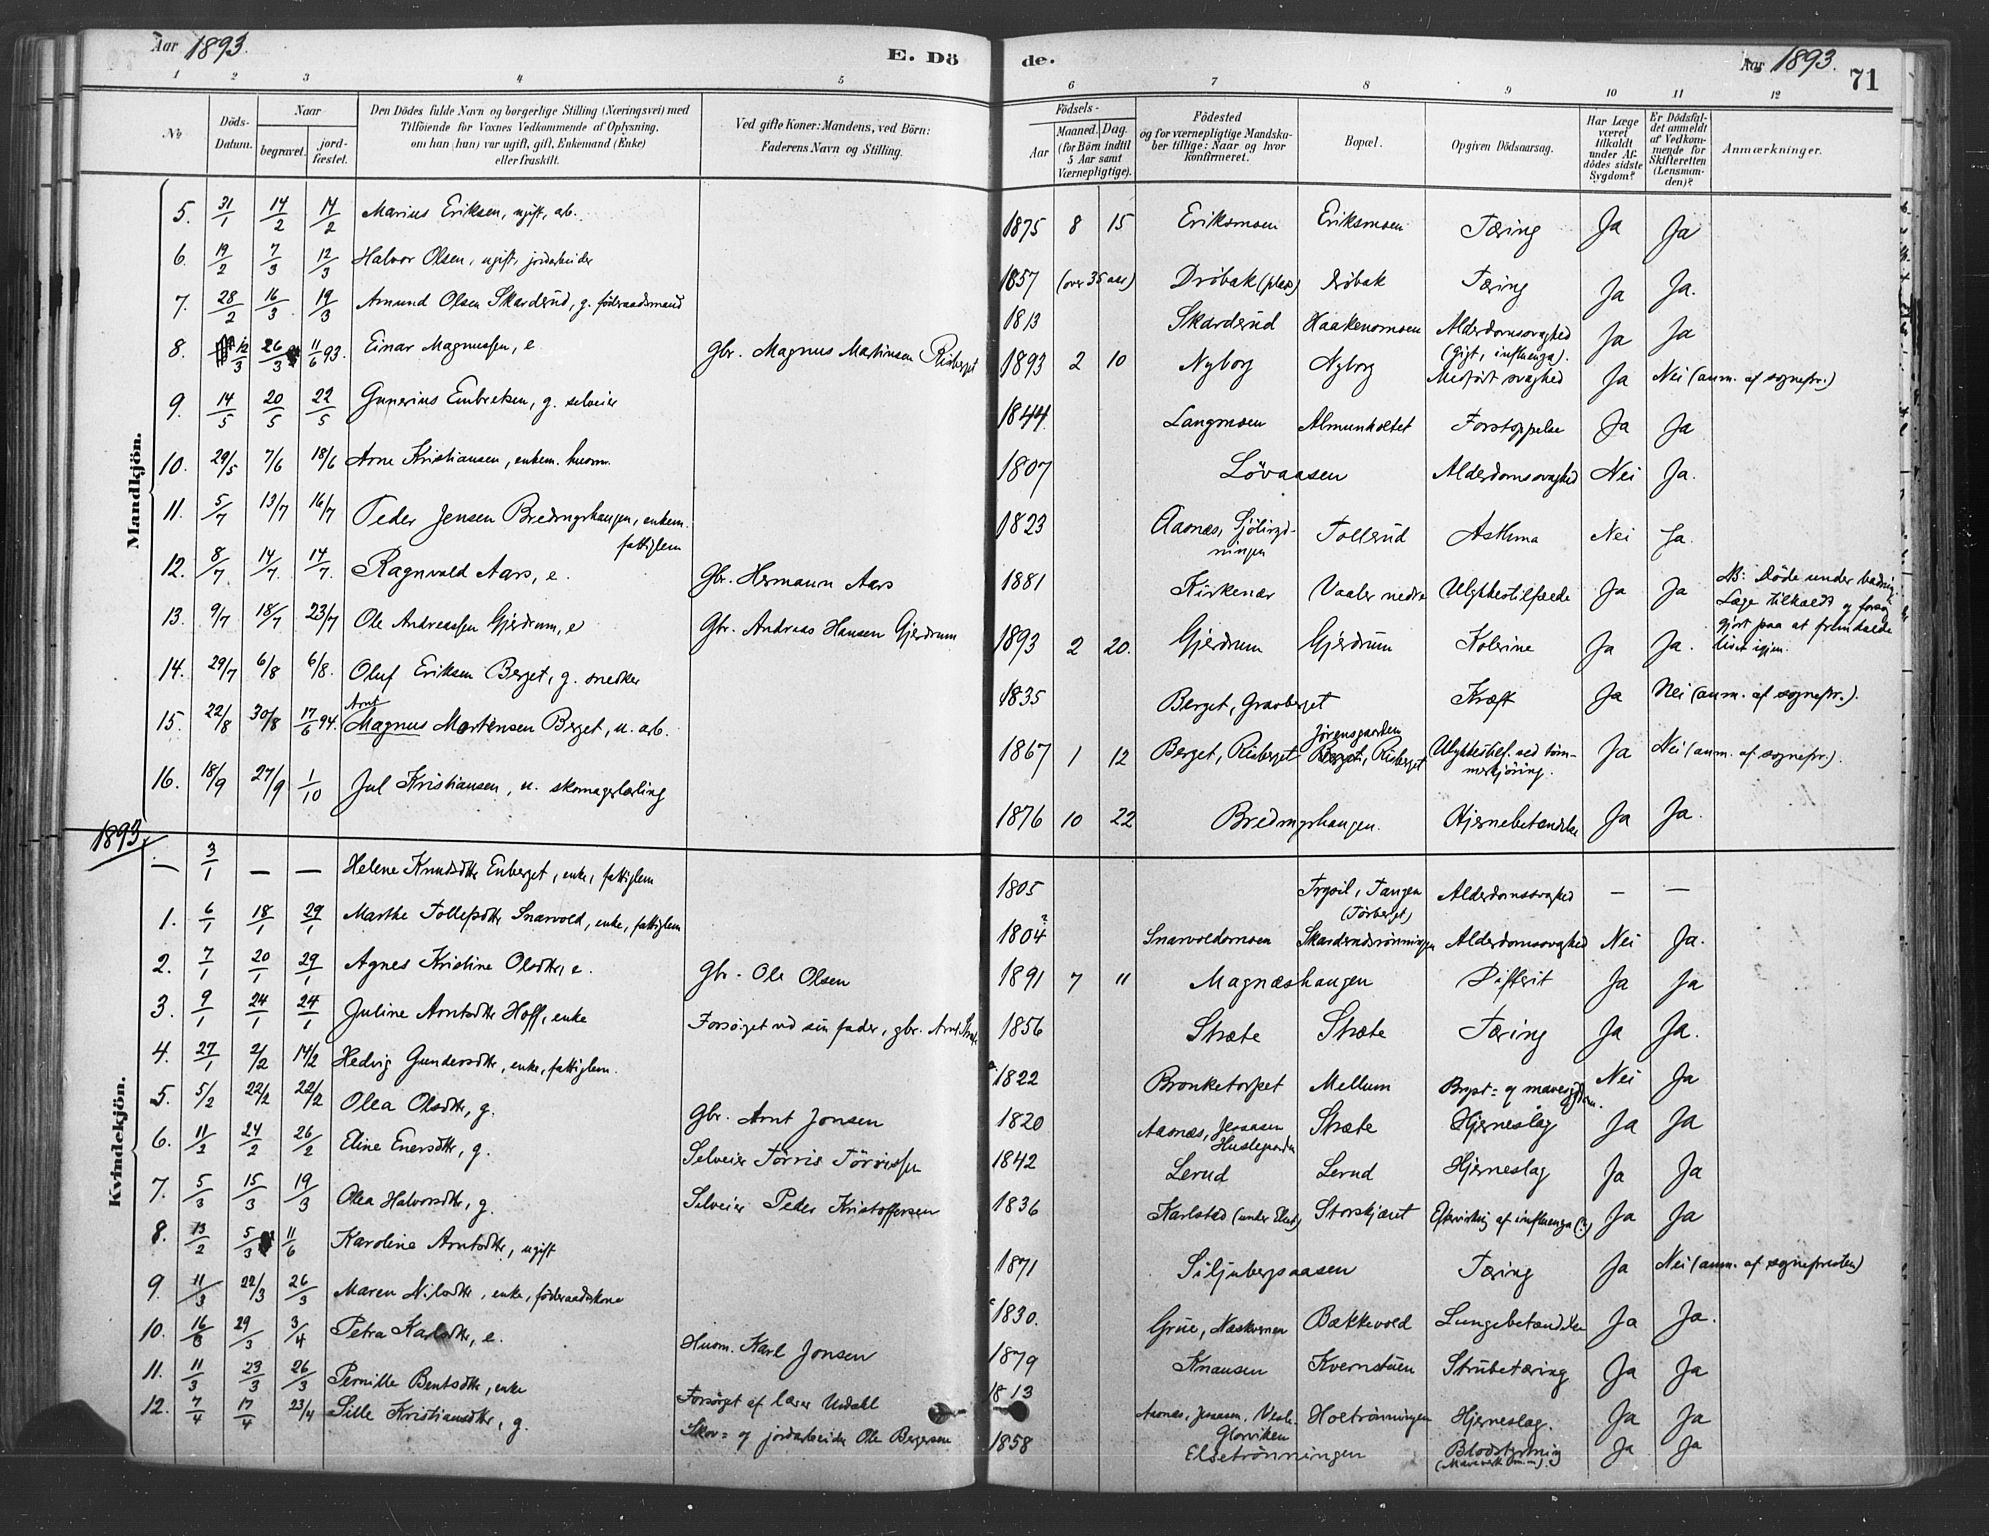 Aar 1893. E. Dö de. Aar 1893. 71
1 2 3 4 5 6 7 8 9 10 11 12
No
Döds-
Datum.
Naar
begravet.
jord-
fæstet.
Den Dödes fulde Navn og borgerlige Stilling (Næringsvei) med
Tilföiende for Voxnes Vedkommende af Oplysning.
om han (hun) var ugift, gift, Enkemand (Enke)
eller fraskilt.
Ved gifte Koner: Mandens, ved Börn:
Faderens Navn og Stilling.
Födsels-
Aar
Maaned. Dag.
(for Börn indtil
5 Aar samt
Værnepligtige).
Födested
og for værnepligtige Mandska-
ber tillige: Naar og hvor
konfirmeret.
Bopæl.
Opgiven Dödsaarsag.
Har Læge
været
tilkaldt
under Af-
dödes sidste
Sygdom?
Er Dödsfal-
det anmeldt
af Vedkom-
mende for
Skifteretten
(Lensman-
den)?
Anmærkninger.
Mandkjön.
5. 31/1 14/2 14/2 Marius Eriksen, ugift, arb. 1875 8 15 Eriksmoen Eriksmoen Tæring Ja Ja
6. 19/2 7/3 12/3 Halvor Olsen, ugift, jordarbeider 1857 (over 35 aar) Dröbak (plads) Dröbak Tæring Ja Ja.
7. 28/2 16/3 19/3 Amund Olsen Skarderud, g. föderaadsmand 1813 Skarderud Haakensmoen Alderdomssvaghed
(Gigt, influenza). Ja Ja
8. 12/3 26/3 11/6 93. Einar Magnussen, e. Gbr. Magnus Martinsen Risberget 1893 2 10 Nyborg Nyborg Medfödt svaghed Ja Nei (anm. af sognepr.)
9. 14/5 20/5 22/5 Gunerius Embretsen, g. selveier 1844 Langmoen Almunkoltet Forstoppelse Ja Ja
10. 29/5 7/6 18/6 Arne Kristiansen, enkem. husm. 1807 Lövaasen Alderdomssvaghed Nei Ja.
11. 5/7 13/7 16/7 Peder Jensen Bredingshaugen, enkem.
fattiglem 1823 Aasnæs, Sjöliryd-
ningen Tollerud Asthma Nei Ja.
12. 8/7 14/7 14/7 Ragnvald Aars, e. Gbr. Hermann Aars 1881 Kirkenær Vaaler nedre Ulykkestilfælde Ja Ja NB: Döde under badning.
Læge tilkaldt og forsög
gjort paa at fremkalde
livet igjen.
13. 9/7 18/7 23/7 Ole Andreassen Gjerdrum, e Gbr. Andreas Hansen Gjerdrum 1893 2 20. Gjerdrum Gjerdrum Kolerine Ja Ja.
14. 29/7 6/8 6/8. Oluf Eriksen Berget, g. snedker 1835 Berget, Gravberget Kræft Ja Nei (anm. af sognepr.).
15. 22/8 30/8 17/6 94. Arnt
Magnus Mortensen Berget, u. arb. 1867 1 12 Berget, Risberget Jörensgarden
Berget, Risberget Ulykkestilf. ved töm-
merkjöring. Ja Nei (anm. af sognepr.).
16. 18/9 27/9 1/10 Jul Kristiansen, u. skomagerlærling 1876 10 22 Bredingshaugen. Hjernebetændelse Ja Ja.
1893.
Kvindekjön.
— 3/1 — — Helene Knudsdtr Enberget, enke, fattiglem 1805 Trysil, Tangen
(Törberget) Alderdomssvaghed — —
1. 6/1 18/1 29/1 Marthe Tollefsdtr Snarvold, enke, fattiglem 1804? Snarvoldsmoen Skarderudsrönningen Alderdomssvaghed Nei Ja.
2. 7/1 20/1 29/1 Agnes Kristine Olsdtr, e. Gbr. Ole Olsen 1891 7 11 Magnæshaugen Difterit Ja Ja
3. 9/1 24/1 24/1 Juline Arntsdtr Hoff, enke Forsörget ved sin fader, gbr. Arnt Stræte 1856 Stræte Stræte Tæring Ja Ja.
4. 27/1 2/2 14/2 Hedvig Gundersdtr, enke, fattiglem. 1822 Bronketorpet Mellum Bryst- og mavesygdom. Nei Ja
5. 5/2 22/2 22/2 Olea Olsdtr, g. Gbr. Arnt Jonsen 1820 Aasnæs, Jerasen
Huslegarden Stræte Hjerneslag Ja Ja
6. 11/2 24/2 26/2 Eline Enersdtr, g. Selveier Törris Törrissen 1842 Lerud Lerud Hjerneslag Ja Ja
7. 5/3 15/3 19/3 Olea Halvorsdtr, g. Selveier Peder Kristoffersen 1836 Karlstad Storskjæret Eftervirkning af influenza (?) Ja Ja
8. 13/2 5/3 11/6 Karoline Arntsdtr, ugift 1871 Siljubergsaasen Tæring Ja Nei (anm. af sognepresten)
9. 11/3 22/3 26/3 Maren Nilsdtr, enke, föderaadskone 1830. Grue, Næskvernen Bakkevold Lungebetændelse Ja Ja.
10. 16/3 29/3 3/4 Petra Karlsdtr, e. Husm. Karl Jonsen 1879 Knausen Kvernstuen Strubetæring Ja Ja
11. 11/3 23/3 26/3 Pernille Bentsdtr, enke Forsörget af lærer Urdahl 1813 Aasnæs, Glorviken Holtrönningen Hjerneslag. Ja Ja
12. 7/4 17/4 23/4 Sille Kristiansdtr, g. Skov- og jordarbeider Ole Bergersen 1858 Elsetrönningen Blodstyrtning Ja Ja